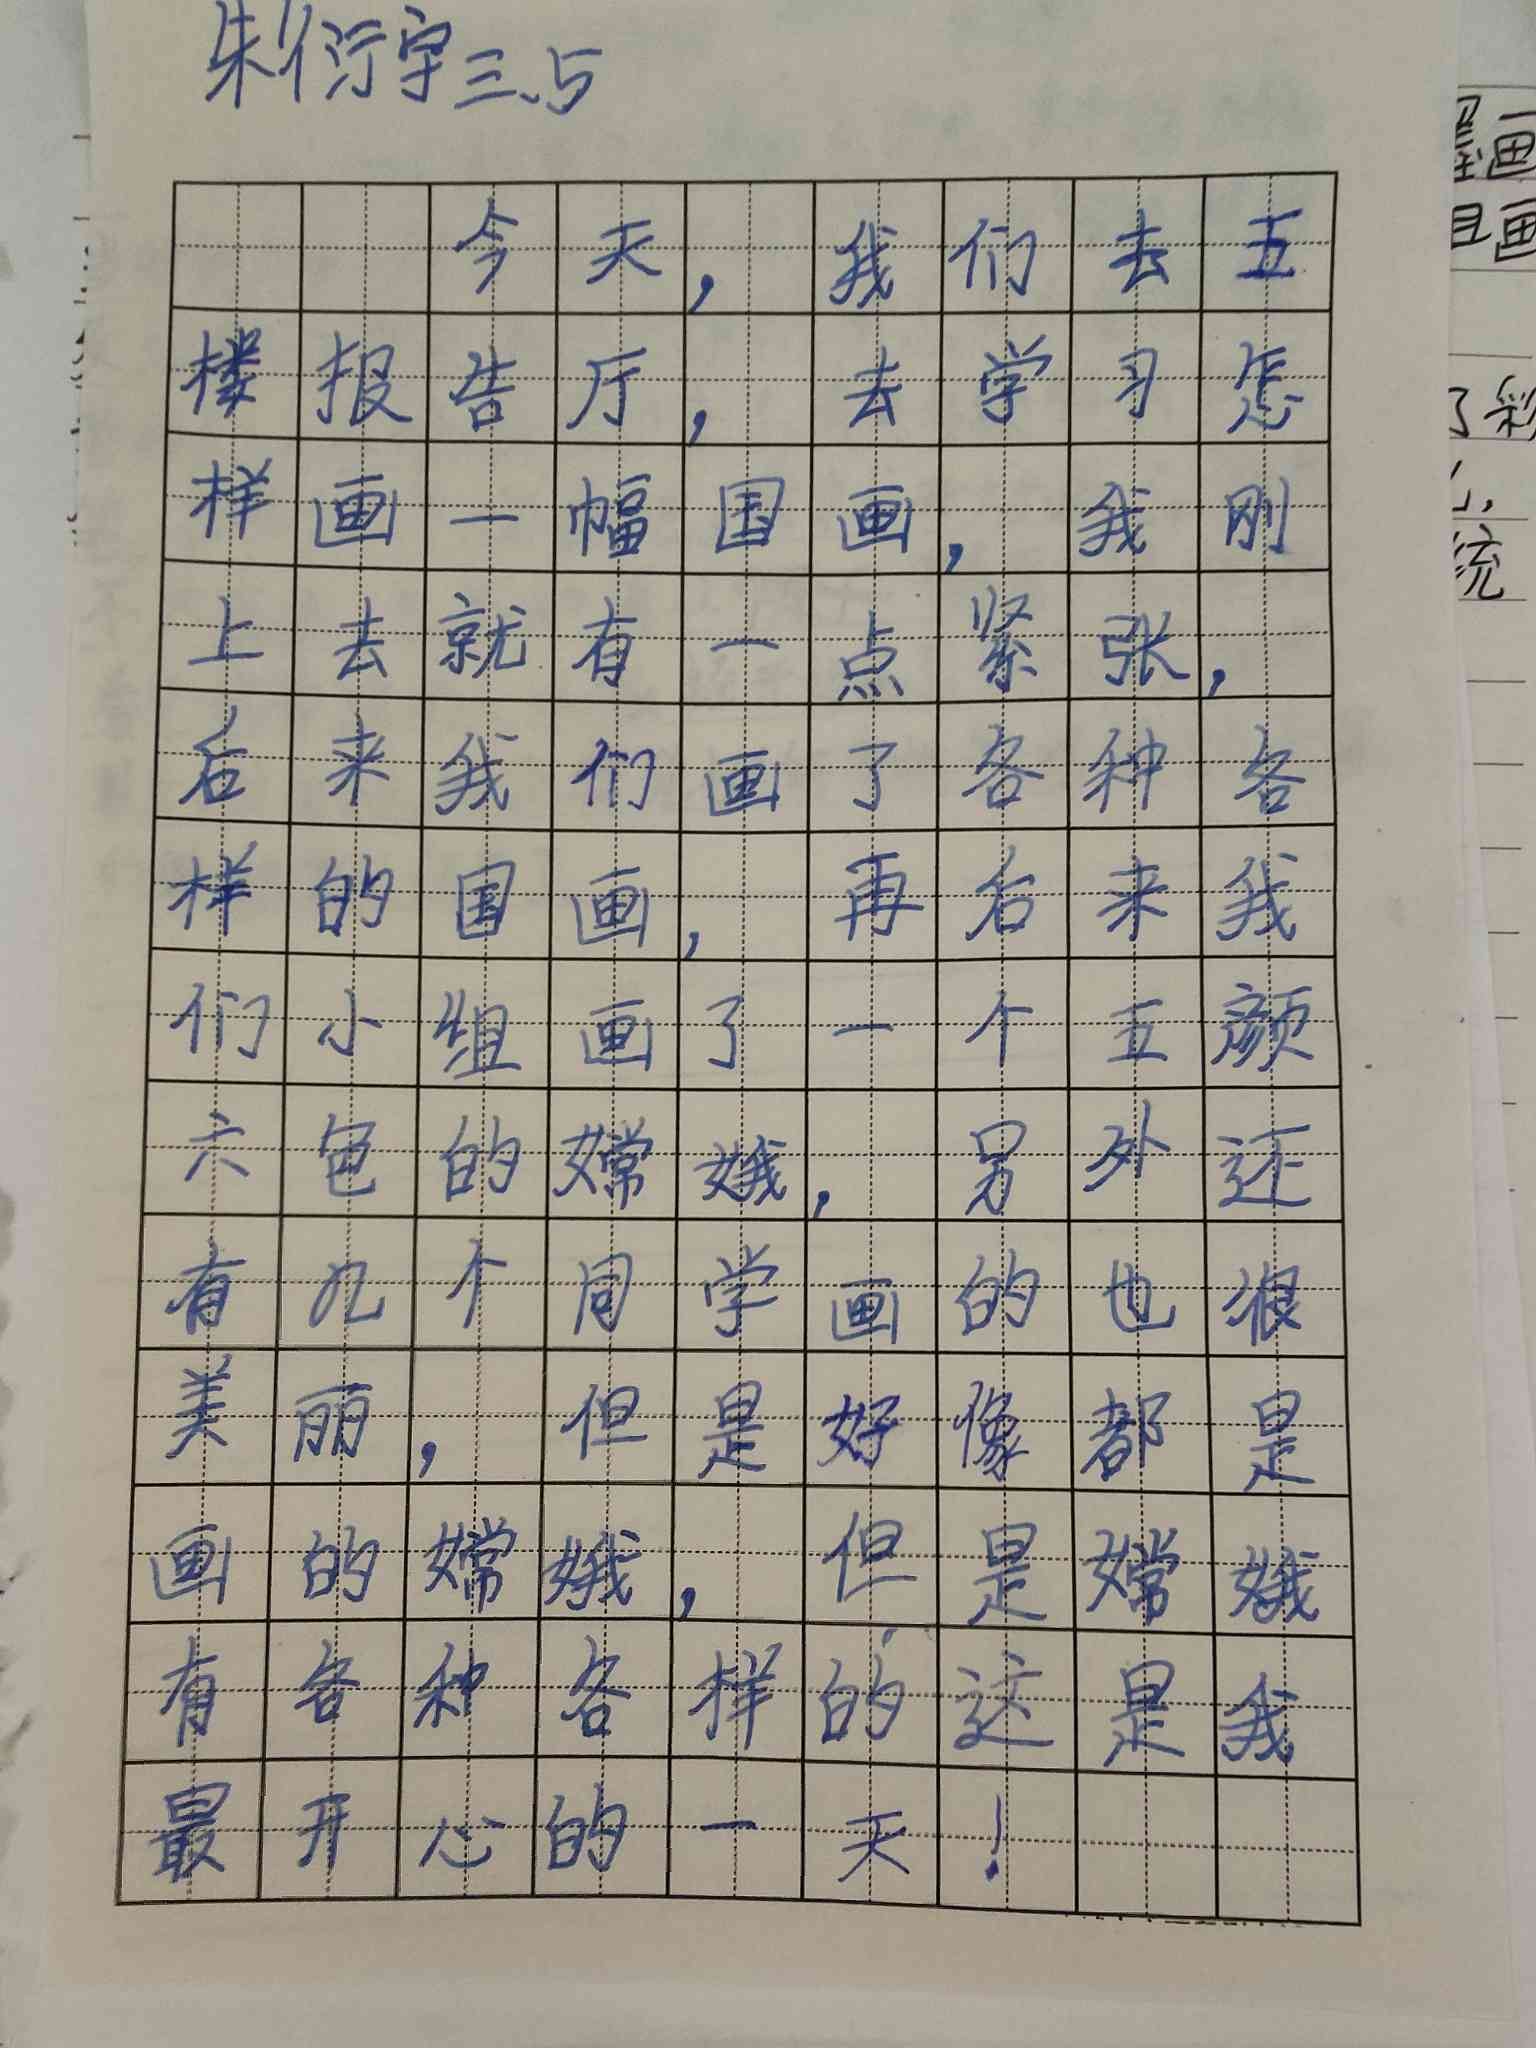 朱衍宇三、5
今天，我们去五
楼报告厅，去学习怎
样画一幅国画，我刚
上去就有一点紧张，
后来我们画了各种各
样的国画，再后来我
们小组画了一个五颜
六色的嫦娥，另外还
有九个同学画的也很
美丽，但是好像都是
画的嫦娥，但是嫦娥
有各种各样的这是我
最开心的一天！
画
且画
了彩
统